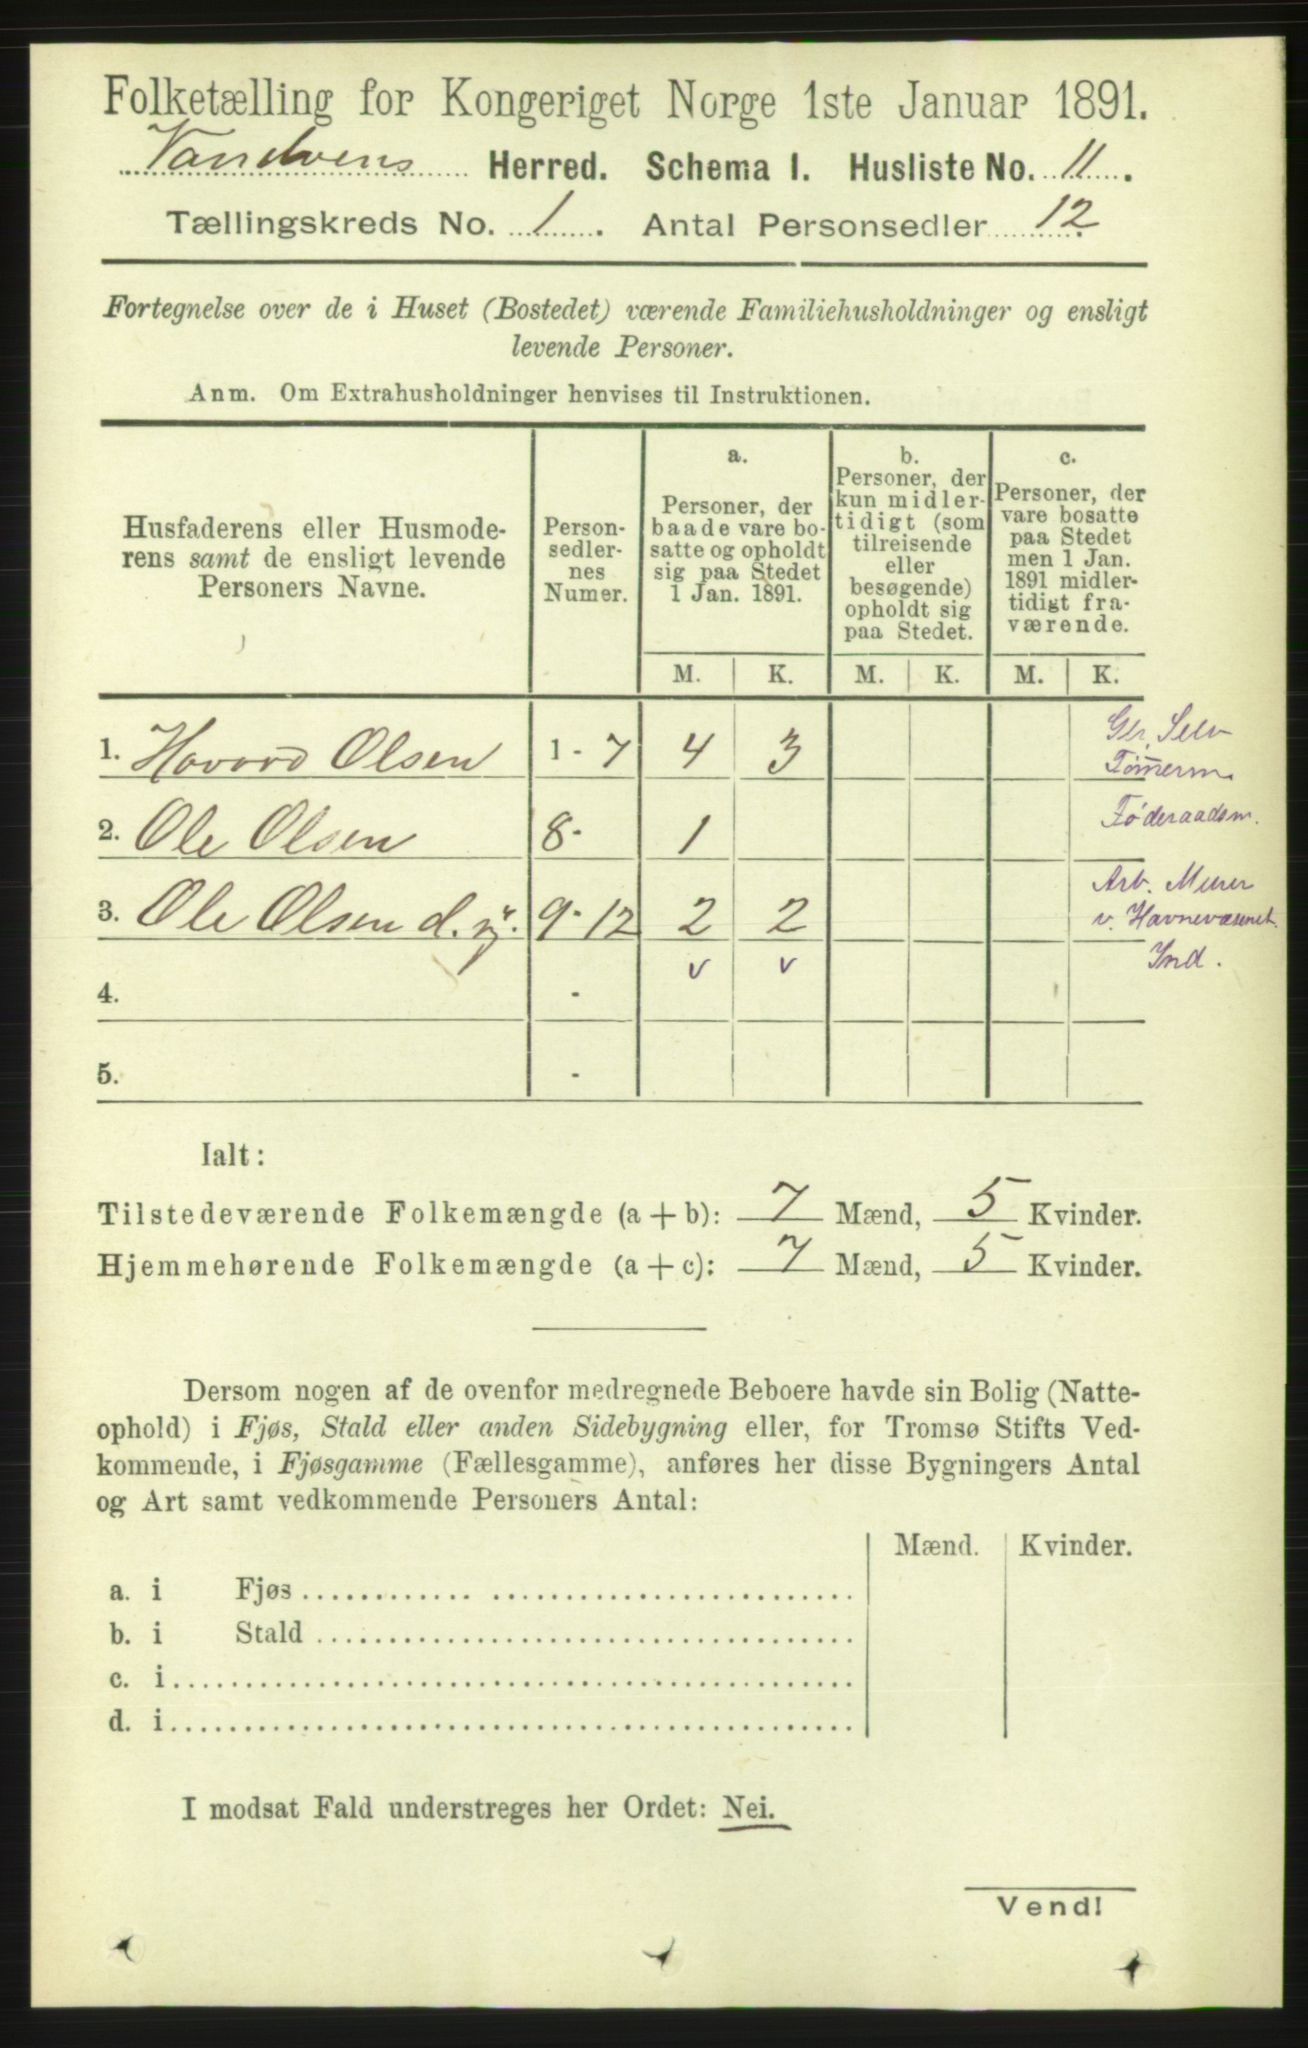 Folketælling for Kongeriget Norge 1ste Januar 1891.
Vandvens Herred. Schema I. Husliste No. 11.
Tællingskreds No. 1. Antal Personsedler 12
Fortegnelse over de i Huset (Bostedet) værende Familiehusholdninger og ensligt
levende Personer.
Anm. Om Extrahusholdninger henvises til Instruktionen.
Husfaderens eller Husmode-
rens samt de ensligt levende
Personers Navne.
Person-
sedler-
nes
Numer.
a.
Personer, der
baade vare bo-
satte og opholdt
sig paa Stedet
1 Jan. 1891.
b.
Personer, der
kun midler-
tidigt (som
tilreisende
eller
besøgende)
opholdt sig
paa Stedet.
c.
Personer, der
vare bosatte
paa Stedet
men 1 Jan.
1891 midler-
tidigt fra-
værende.
M. K. M. K. M. K.
1. Havard Olsen 1 - 7 4 3 Gbr. Selv
Tømerm.
2. Ole Olsen 8- 1 Føderaadsm.
3. Ole Olsen d. y. 9-12 2 2 Arb. Murer
v. Havnevæsenet.
v v Ind.
4. -
5. -
Ialt:
Tilstedeværende Folkemængde (a+b): 7 Mænd, 5 Kvinder.
Hjemmehørende Folkemængde (a+c): 7 Mænd, 5 Kvinder.
Dersom nogen af de ovenfor medregnede Beboere havde sin Bolig (Natte-
ophold) i Fjøs, Stald eller anden Sidebygning eller, for Tromsø Stifts Ved-
kommende, i Fjøsgamme (Fællesgamme), anføres her disse Bygningers Antal
og Art samt vedkommende Personers Antal:
Mænd. Kvinder.
a. i Fjøs
b. i Stald
c. i
d. i
I modsat Fald understreges her Ordet: Nei.
Vend!